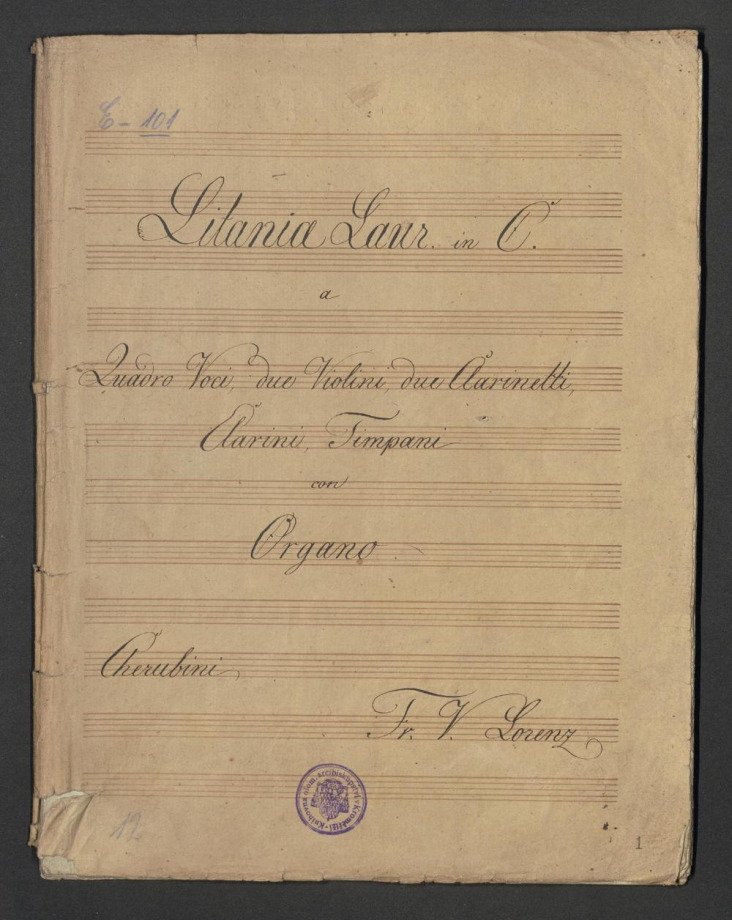 C - 101
Litaniæ Laur. in C.
a
Quadro Voci, due Violini, due Clarinetti,
Clarini, Timpani
con
Organo
Cherubini
Fr. V. Lorenz
Knihovna olom. arcibiskupství v Kroměříži
19.
1